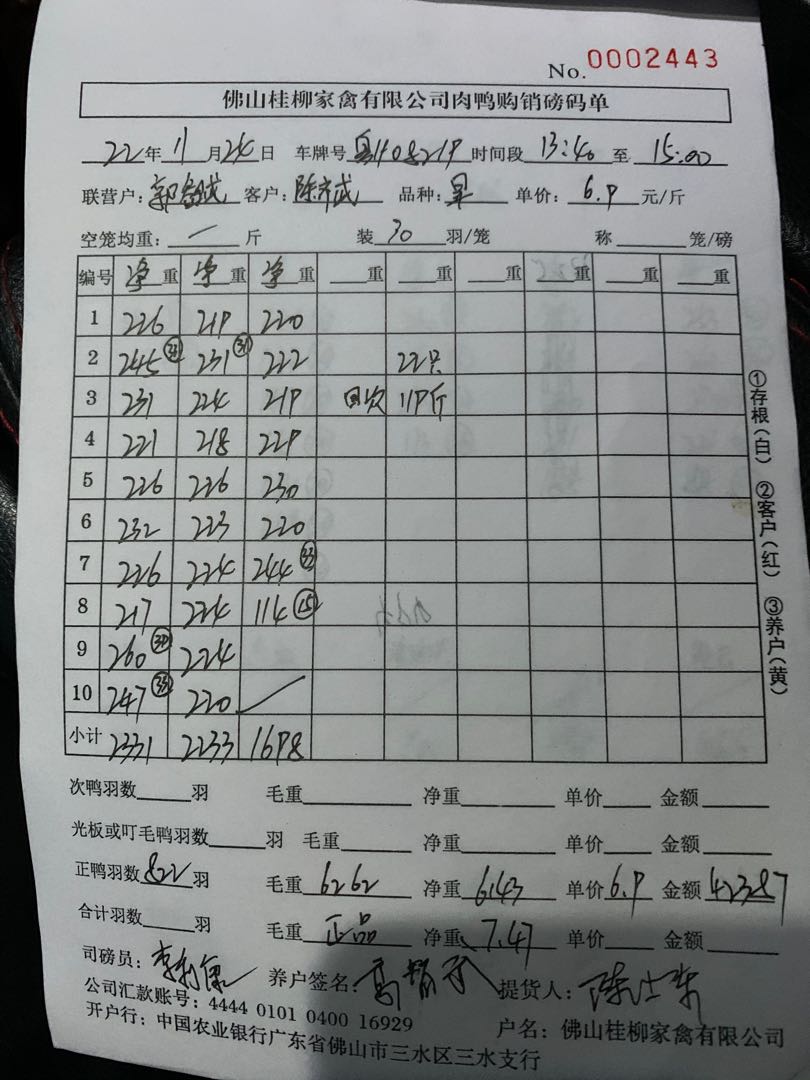 No. 0002443
佛山桂柳家禽有限公司肉鸭购销磅码单
22年11月24日 车牌号粤H0821P 时间段13:40至15:00
联营户: 客户:陈齐武 品种: 单价:6.9元/斤
空笼均重:/斤 装30羽/笼 称 笼/磅
编号 净重 净重 净重 重 重 重 重 重 重
1 226 219 220
2 245(33) 231(31) 222 22只
3 231 224 219 回收 119斤
4 221 218 229
5 226 226 230
6 232 223 220
7 226 224 244(33)
8 217 224 114(15)
9 260 224
10 247(33) 220 /
小计 2331 2233 1698
次鸭羽数 羽 毛重 净重 单价 金额
光板或叮毛鸭羽数 羽 毛重 净重 单价 金额
正鸭羽数822羽 毛重6262 净重6143 单价6.9 金额42387
合计羽数 羽 毛重正品 净重7.47 单价 金额
司磅员: 养户签名: 提货人:
公司汇款账号:4444 0101 0400 16929 户名:佛山桂柳家禽有限公司
开户行:中国农业银行广东省佛山市三水区三水支行
①存根(白) ②客户(红) ③养户(黄)